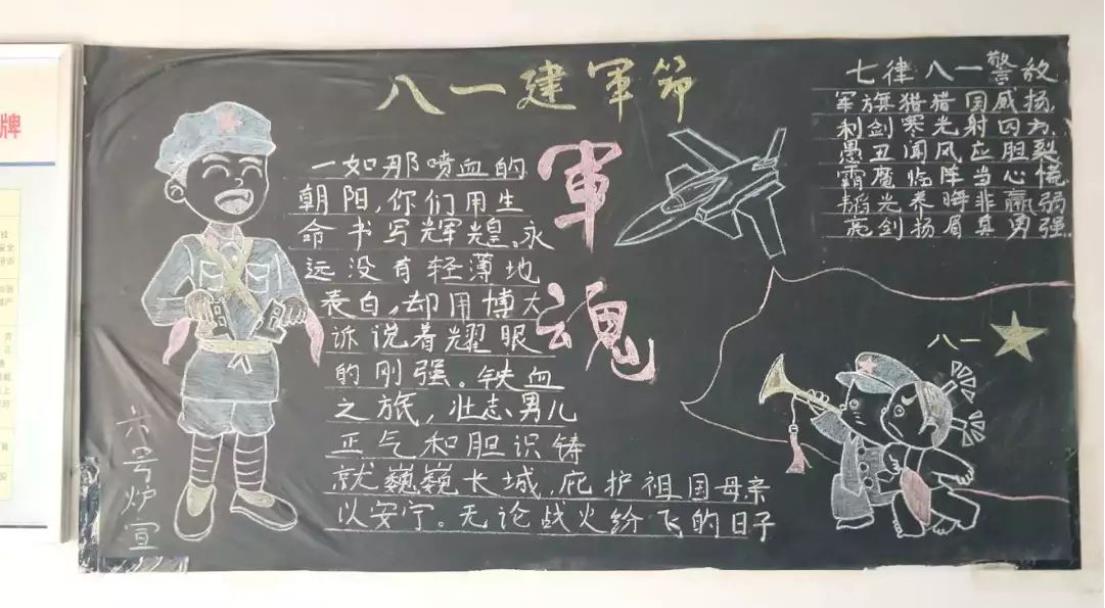 八一建軍節
軍魂
一如那喷血的
朝阳,你们用生
命书写辉煌,永
远没有轻薄地
表白,却用博大
诉说着耀眼
的刚强。铁血
之旅,壮志男儿
正气和胆识铸
就巍巍长城,庇护祖国母亲
以安宁。无论战火纷飞的日子
七律八一警敌
军旗猎猎国威扬,
利剑寒光射四方,
愚丑闻风应胆裂
霸魔临阵当心慌
韬光养晦非羸弱
亮剑扬眉真勇强.
八一
六号炉宣
牌